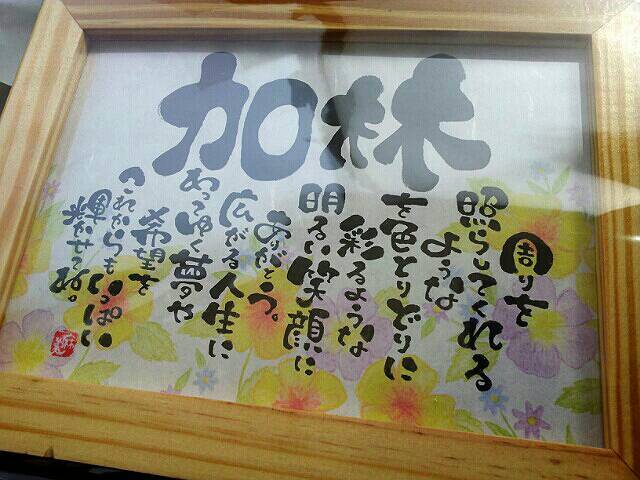 加林
周りを
照らしてくれる
ような
を色とりどりに
彩るような
明るい笑顔に
ありがとう。
広がる人生に
あつゆく夢や
希望を
これからもいっぱい
輝かせてね。